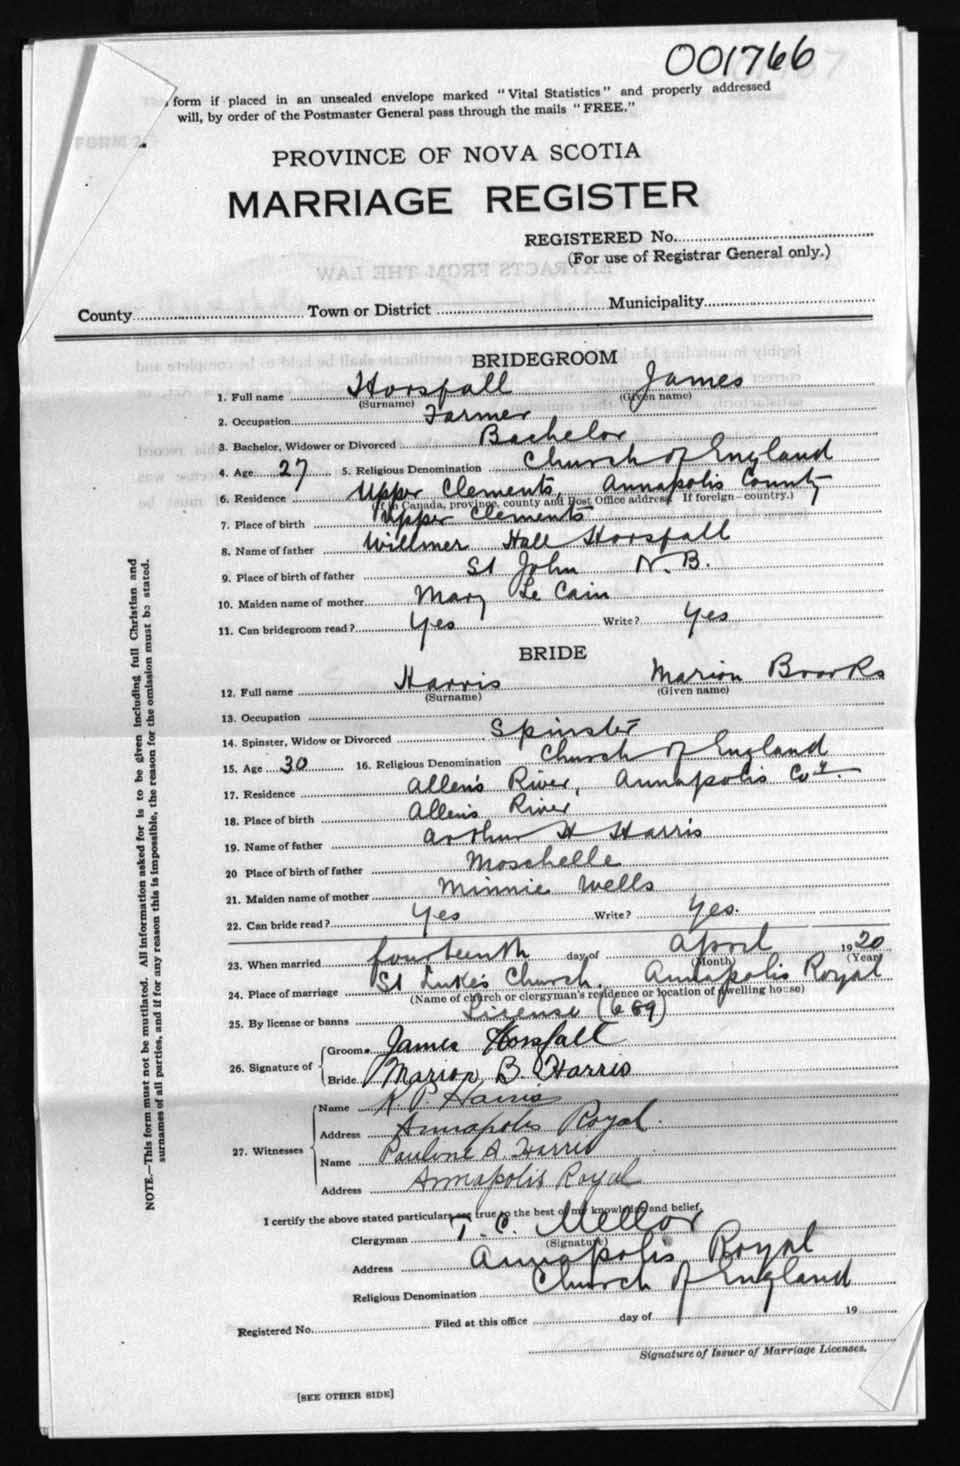 001766
form if placed in an unsealed envelope marked "Vital Statistics" and properly addressed
will, by order of the Postmaster General pass through the mails "FREE."
PROVINCE OF NOVA SCOTIA
MARRIAGE REGISTER
REGISTERED No.
(For use of Registrar General only.)
County Town or District Municipality
BRIDEGROOM
1. Full name Horsfall James
(Surname) (Given name)
2. Occupation Farmer
3. Bachelor, Widower or Divorced Bachelor
4. Age 27 5. Religious Denomination Church of England
6. Residence Upper Clements, Annapolis County
(If in Canada, province, county and Post Office address. If foreign—country.)
7. Place of birth Upper Clements
8. Name of father Willmer Hall Horsfall
9. Place of birth of father St John N.B.
10. Maiden name of mother Mary Le Cain
11. Can bridegroom read? Yes Write? Yes
BRIDE
12. Full name Harris Marion Brooks
(Surname) (Given name)
13. Occupation
14. Spinster, Widow or Divorced Spinster
15. Age 30 16. Religious Denomination Church of England
17. Residence Allen's River, Annapolis Coy.
18. Place of birth Allens River
19. Name of father Arthur H Harris
20 Place of birth of father Moschelle
21. Maiden name of mother Minnie Wells
22. Can bride read? Yes Write? Yes.
23. When married fourteenth day of April 1920
(Month) (Year)
24. Place of marriage St Luke's Church, Annapolis Royal
(Name of church or clergyman's residence or location of dwelling house)
25. By license or banns License (689)
26. Signature of Groom James Horsfall
Bride Marion B. Harris
27. Witnesses
Name K. P. Harris
Address Annapolis Royal.
Name Pauline A. Harris
Address Annapolis Royal
I certify the above stated particulars are true to the best of my knowledge and belief.
Clergyman T. C. Mellor
(Signature)
Address Annapolis Royal
Religious Denomination Church of England
Registered No. Filed at this office day of 19
Signature of Issuer of Marriage Licenses.
[SEE OTHER SIDE]
NOTE.—This form must not be mutilated. All information asked for is to be given including full Christian and
surnames of all parties, and if for any reason this is impossible, the reason for the omission must be stated.